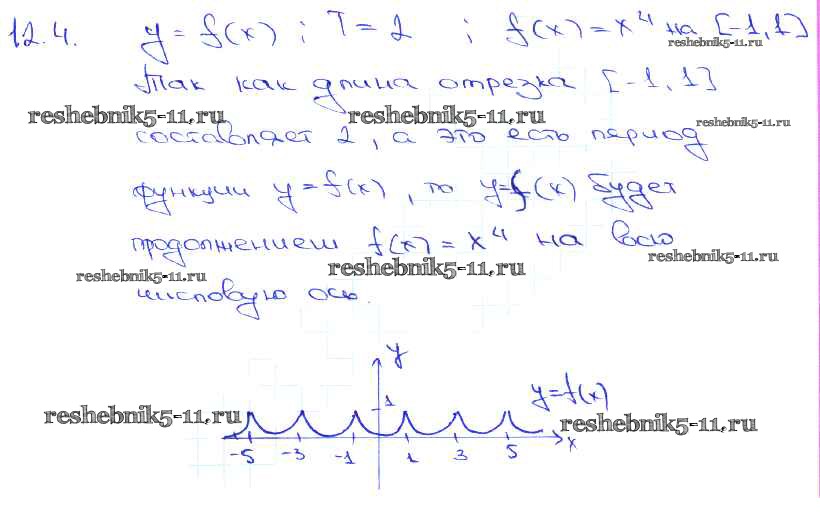 12.4. y = f(x) ; T = 2 ; f(x) = x⁴ на [-1, 1]
reshebnik5-11.ru
Так как длина отрезка [-1, 1]
reshebnik5-11.ru reshebnik5-11.ru reshebnik5-11.ru
составляет 2, а это есть период
функции y = f(x), то y = f(x) будет
продолжением f(x) = x⁴ на всю
reshebnik5-11.ru reshebnik5-11.ru reshebnik5-11.ru
числовую ось.
y
y = f(x)
1
reshebnik5-11.ru reshebnik5-11.ru
x
-5 -3 -1 1 3 5